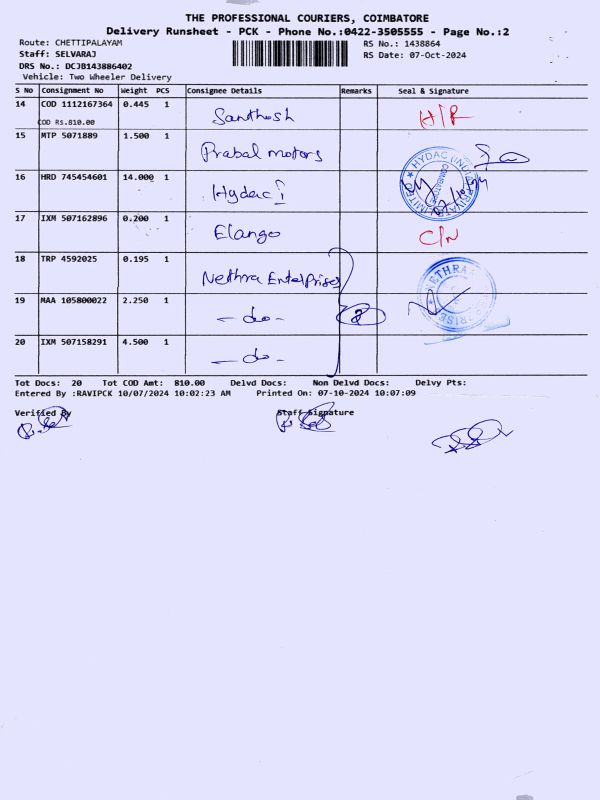 THE PROFESSIONAL COURIERS, COIMBATORE
Delivery Runsheet - PCK - Phone No.:0422-3505555 - Page No.:2
Route: CHETTIPALAYAM
RS No.: 1438864
Staff: SELVARAJ
RS Date: 07-Oct-2024
DRS No.: DCJB143886402
Vehicle: Two Wheeler Delivery
S No Consignment No Weight PCS Consignee Details Remarks Seal & Signature
14 COD 1112167364 0.445 1 Santhosh H/R
COD Rs.810.00
15 MTP 5071889 1.500 1 Prabal motors
16 HRD 745454601 14.000 1 Hydac HYDAC (INDIA) PRIVATE LIMITED COIMBATORE
17 IXM 507162896 0.200 1 Elango C/N
18 TRP 4592025 0.195 1 Nethra Enterprises NETHRA ENTERPRISE
19 MAA 105800022 2.250 1 - do -
20 IXM 507158291 4.500 1 - do -
Tot Docs: 20 Tot COD Amt: 810.00 Delvd Docs: Non Delvd Docs: Delvy Pts:
Entered By :RAVIPCK 10/07/2024 10:02:23 AM Printed On: 07-10-2024 10:07:09
Verified By Staff Signature